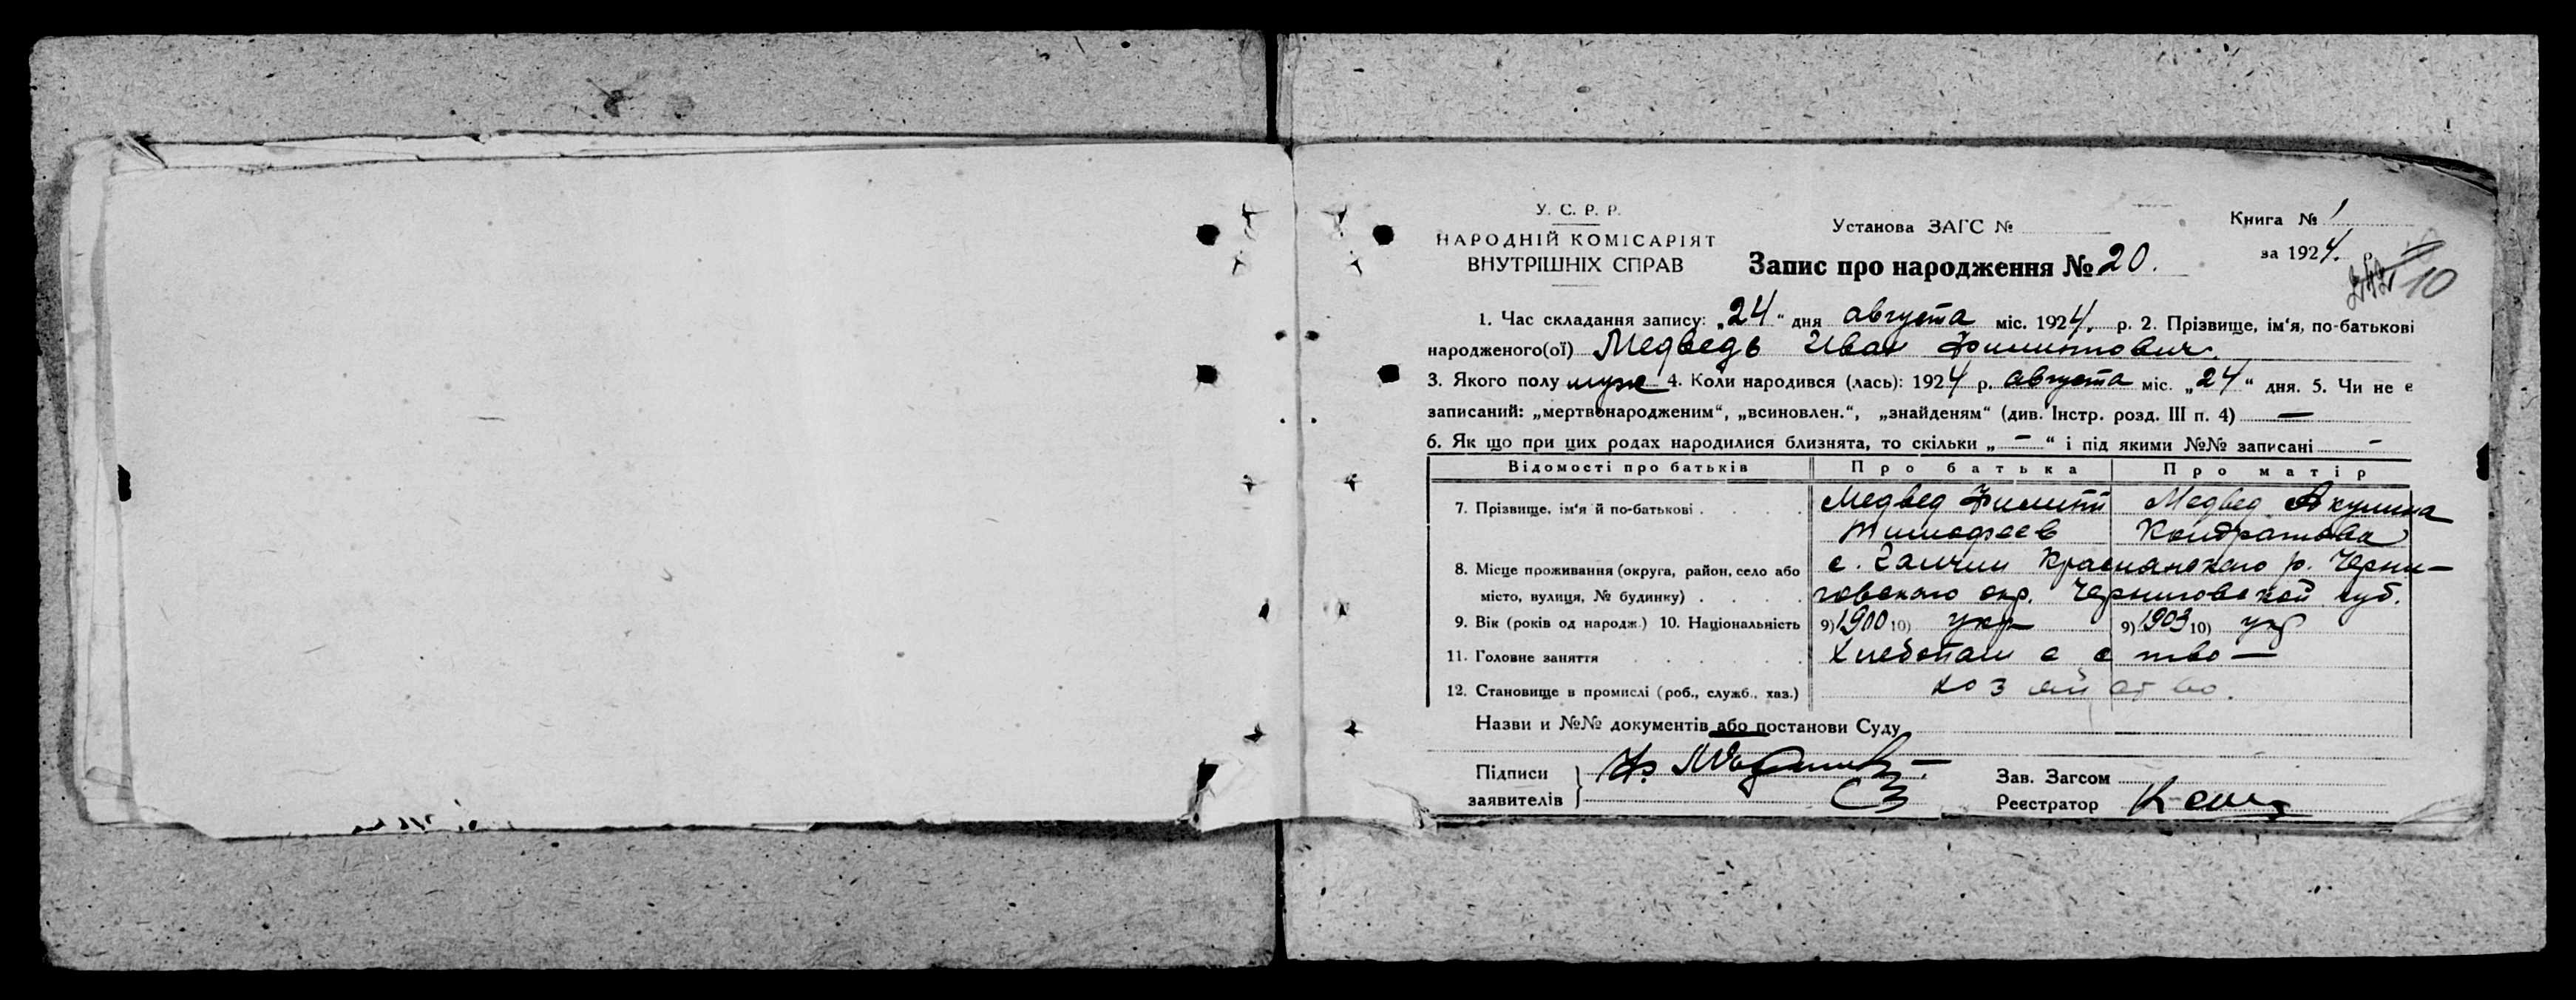 У. С. Р. Р.
НАРОДНІЙ КОМІСАРІЯТ
ВНУТРІШНІХ СПРАВ
Установа ЗАГС №
Запис про народження № 20.
Книга № 1
за 1924. р.
10
1. Час складання запису: „24“ дня августа міс. 1924. р. 2. Прізвище, ім‘я, по-батькові
народженого(ої) Медведь Иван Филиппович.
3. Якого полу муж 4. Коли народився (лась): 1924 р. августа міс. „24“ дня. 5. Чи не є
записаний: „мертвонародженим“, „всиновлен.“, „знайденям“ (див. Інстр. розд. III п. 4) —
6. Як що при цих родах народилися близнята, то скільки „ — “ і під якими №№ записані -
Відомості про батьків Про батька Про матір
7. Прізвище, ім‘я й по-батькові . . . . Медвед Филипп Медвед Акулина
Тимофеев Кондратова
8. Місце проживання (округа, район, село або с. Краснянского р. Черни-
місто, вулиця, № будинку) . . . . говского окр. Черниговской губ.
9. Вік (років од народж.) 10. Національність 9) 1900 10) укр 9) 1903 10) укр
11. Головне заняття . . . . . Хлебопашество —
12. Становище в промислі (роб., служб., хаз.) хозяйство.
Назви и №№ документів або постанови Суду
Підписи
заявителів
Зав. Загсом
Реєстратор